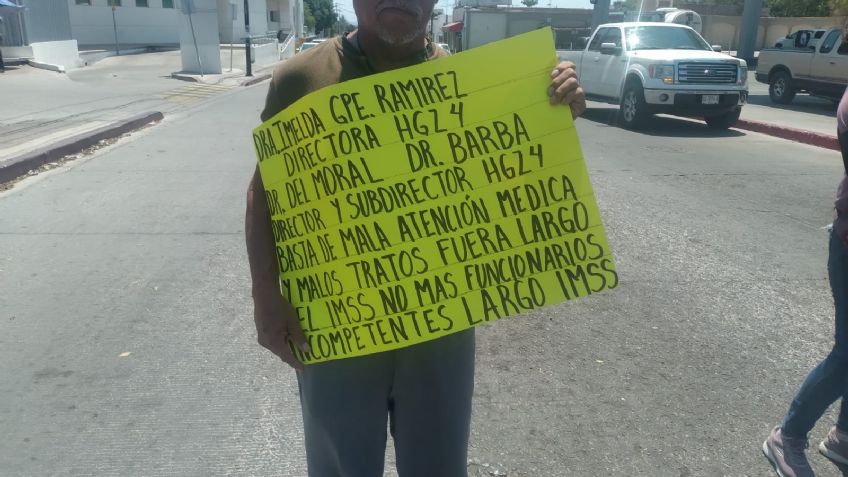 DRA.IMELDA GPE. RAMIREZ
DIRECTORA HGZ4
DR. DEL MORAL DR. BARBA
DIRECTOR Y SUBDIRECTOR HGZ4
BASTA DE MALA ATENCIÓN MEDICA
Y MALOS TRATOS FUERA LARGO
EL IMSS NO MAS FUNCIONARIOS
INCOMPETENTES LARGO IMSS